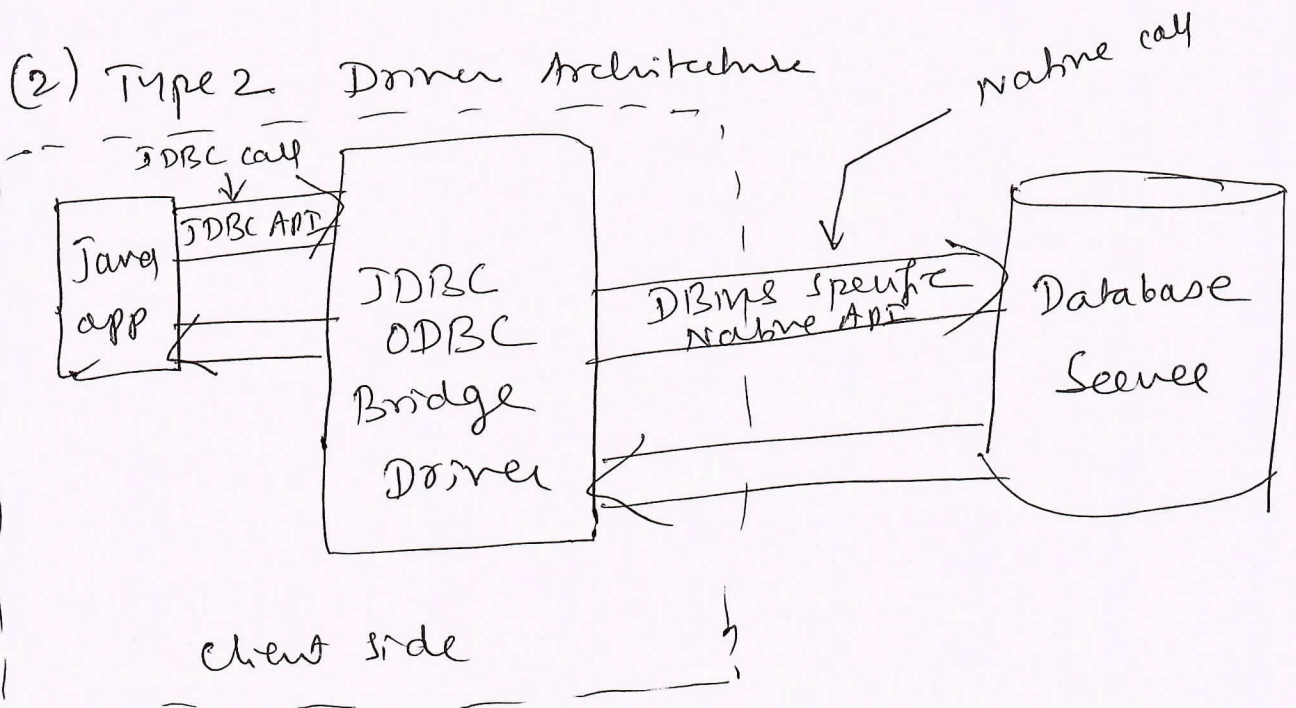 (2) Type 2 Driver Architecture
Native call
JDBC call
JDBC API
Java
app
JDBC
ODBC
Bridge
Driver
DBMS specific
Native API
Database
Server
client side